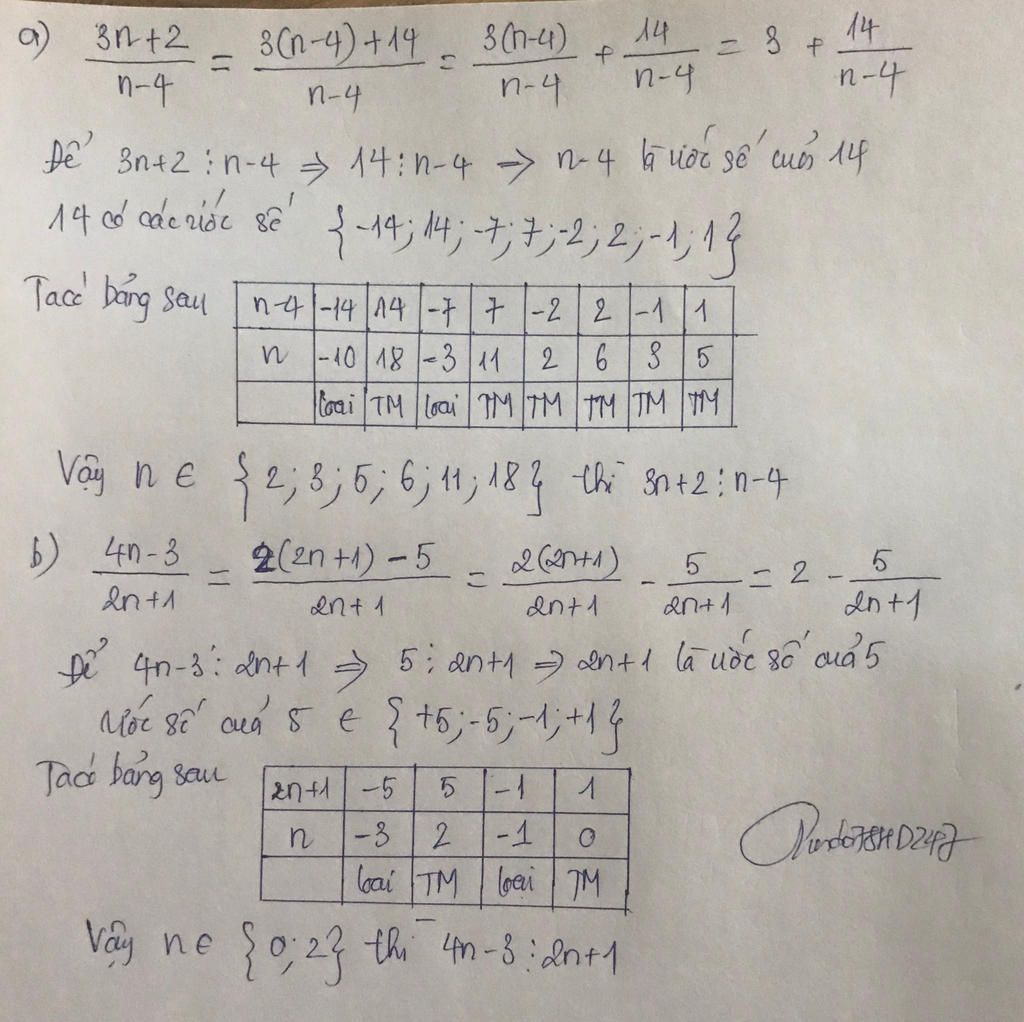 a) (3n+2)/(n-4) = (3(n-4)+14)/(n-4) = 3(n-4)/(n-4) + 14/(n-4) = 3 + 14/(n-4)
Để 3n+2 ⋮ n-4 ⇒ 14 ⋮ n-4 ⇒ n-4 là ước số của 14
14 có các ước số {-14; 14; -7; 7; -2; 2; -1; 1}
Ta có bảng sau
n-4 -14 14 -7 7 -2 2 -1 1
n -10 18 -3 11 2 6 3 5
loại TM loại TM TM TM TM TM
Vậy n ∈ {2; 3; 5; 6; 11; 18} thì 3n+2 ⋮ n-4
b) (4n-3)/(2n+1) = (2(2n+1) - 5)/(2n+1) = 2(2n+1)/(2n+1) - 5/(2n+1) = 2 - 5/(2n+1)
Để 4n-3 ⋮ 2n+1 ⇒ 5 ⋮ 2n+1 ⇒ 2n+1 là ước số của 5
Ước số của 5 ∈ {+5; -5; -1; +1}
Ta có bảng sau
2n+1 -5 5 -1 1
n -3 2 -1 0
loại TM loại TM
Vậy n ∈ {0; 2} thì 4n-3 ⋮ 2n+1